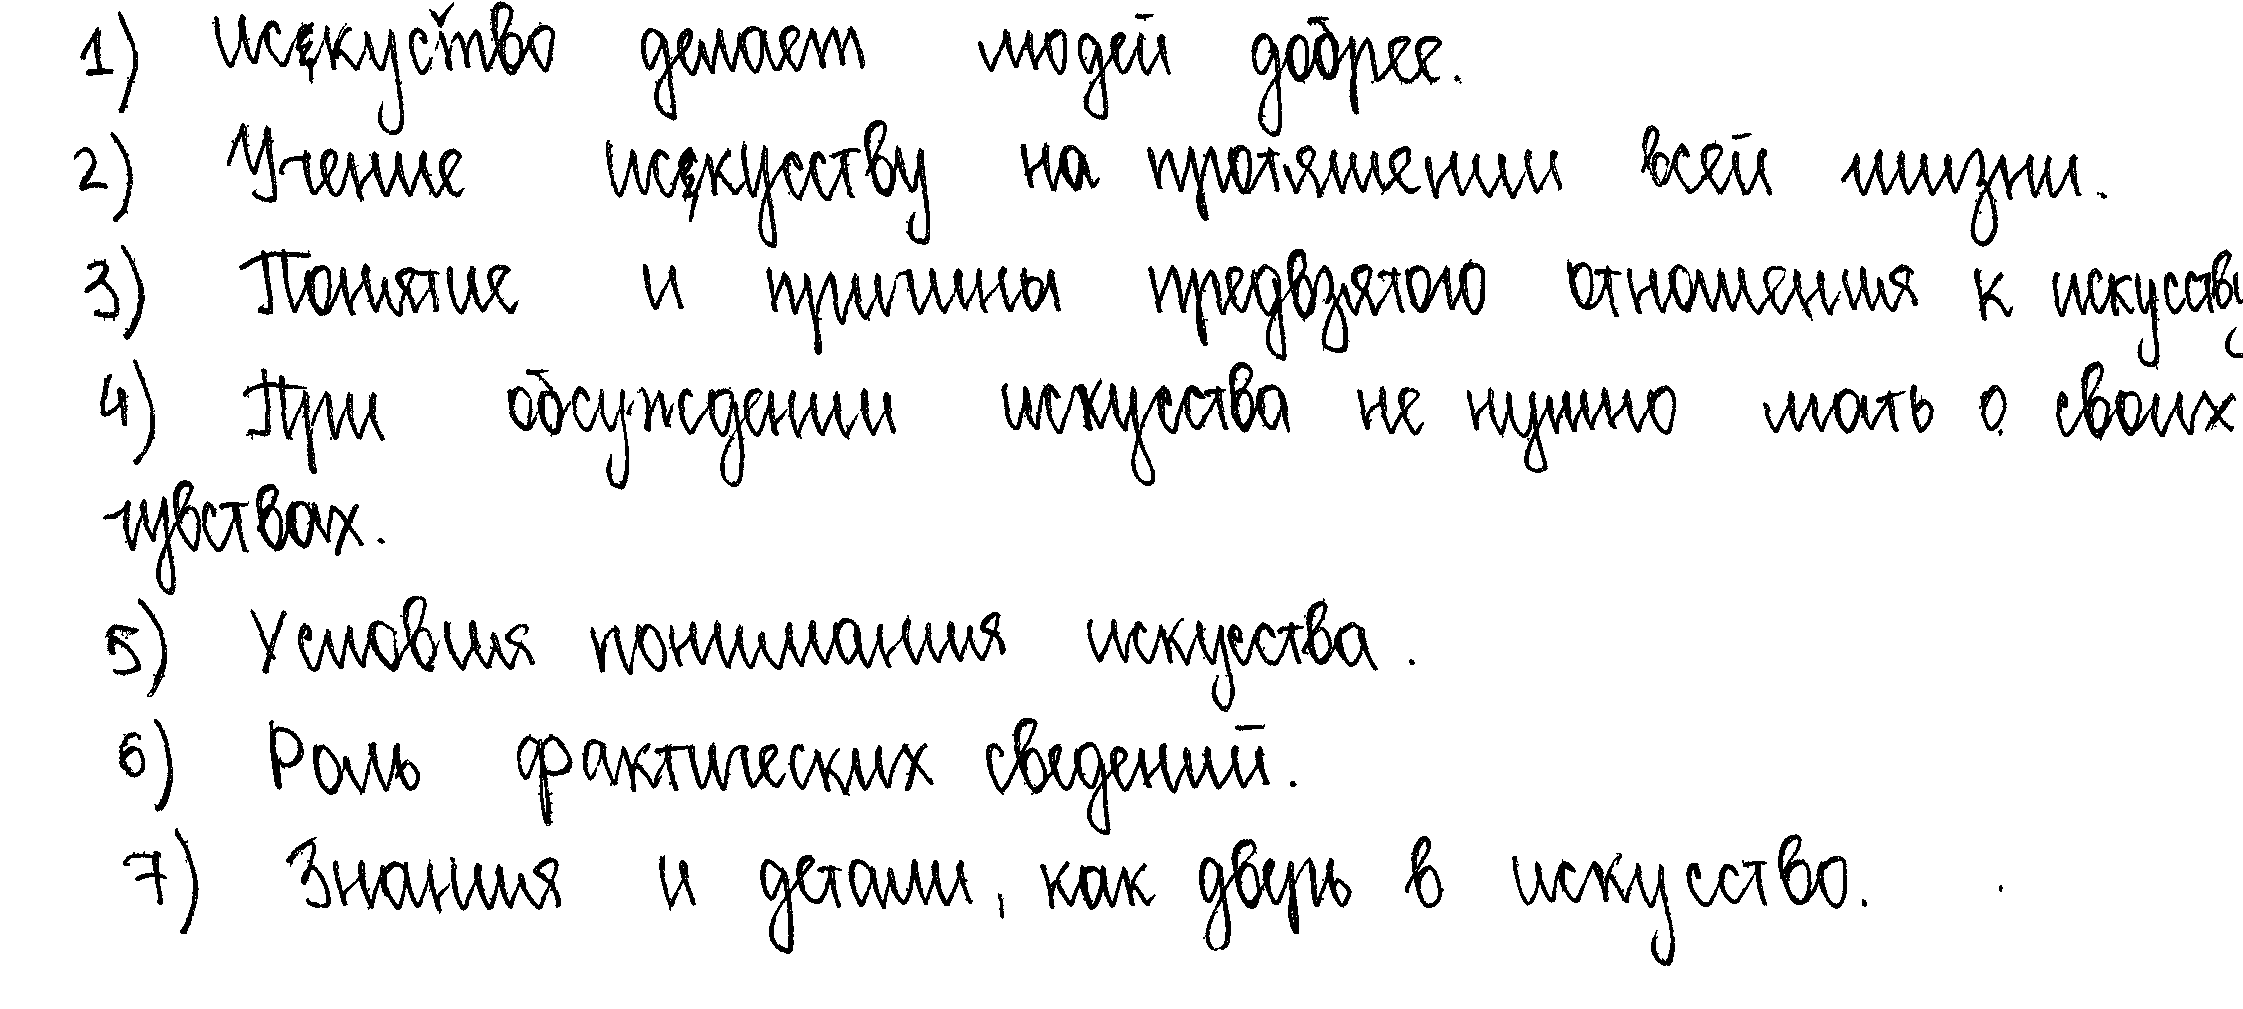 1) искусство делает людей добрее.
2) Учение искусству на протяжении всей жизни.
3) Понятие и причины предвзятого отношения к искусству
4) При обсуждении искусства не нужно лгать о своих
чувствах.
5) Условия понимания искусства.
6) Роль фактических сведений.
7) Знания и детали, как дверь в искусство.